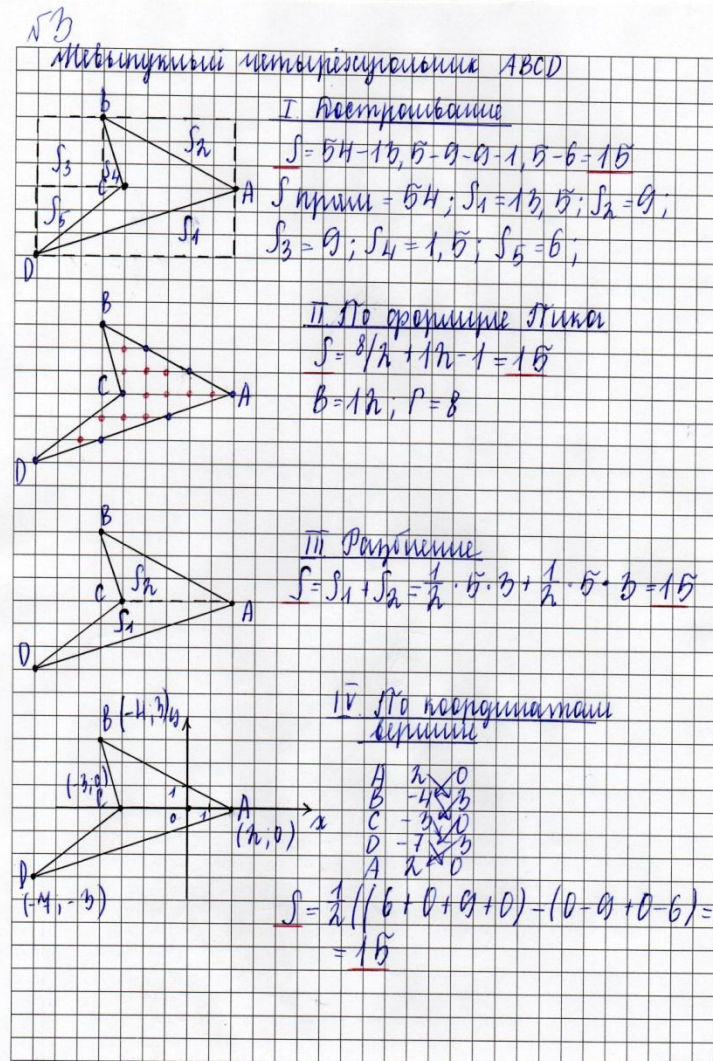 №3
Невыпуклый четырёхугольник ABCD
B
S₃
S₄
S₂
C
A
S₅
S₁
D
I. Достраивание
S = 54-13,5-9-9-1,5-6=15
S прям = 54; S₁=13,5; S₂=9;
S₃=9; S₄=1,5; S₅=6;
B
C
A
D
II. По формуле Пика
S = 8/2 + 12 - 1 = 15
В=12; Г=8
B
C
S₂
A
S₁
D
III Разбиение
S = S₁ + S₂ = 1/2 · 5 · 3 + 1/2 · 5 · 3 = 15
B (-4; 3) y
(-3; 0)
C
1
0 1
A
x
(2; 0)
D
(-7; -3)
IV. По координатам
вершин
A 2 0
B -4 3
C -3 0
D -7 -3
A 2 0
S = 1/2((6+0+9+0)-(0-9+0-6)=
= 15